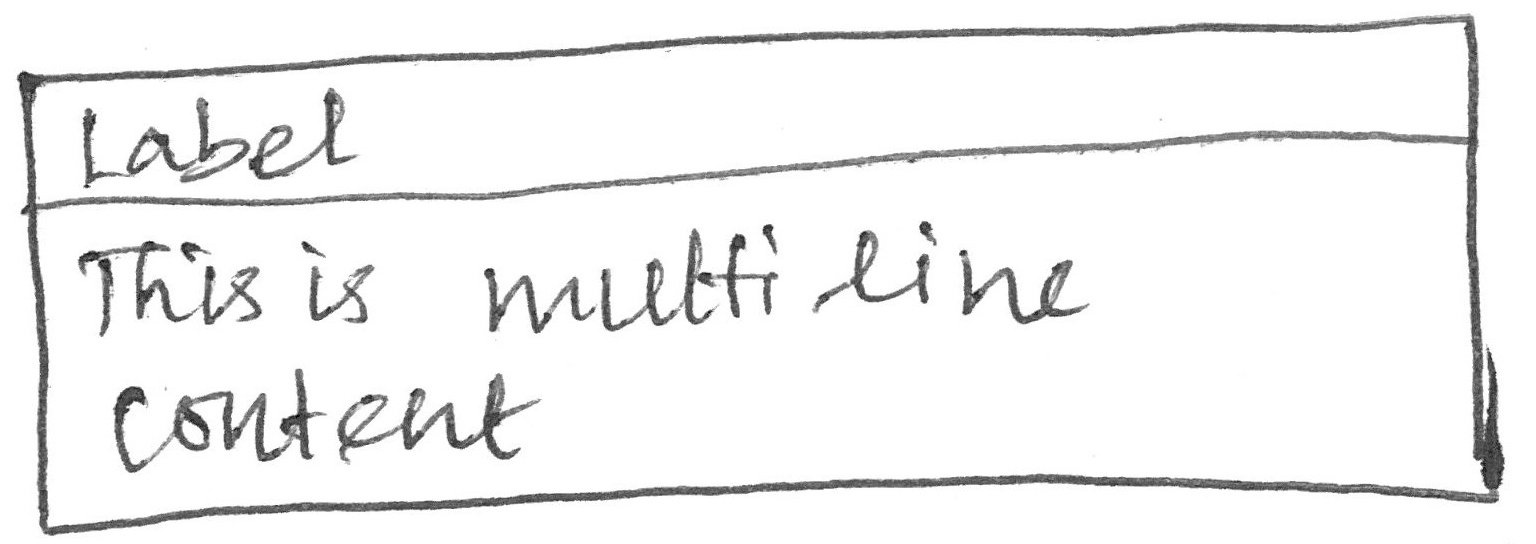 Label
This is multi line
content